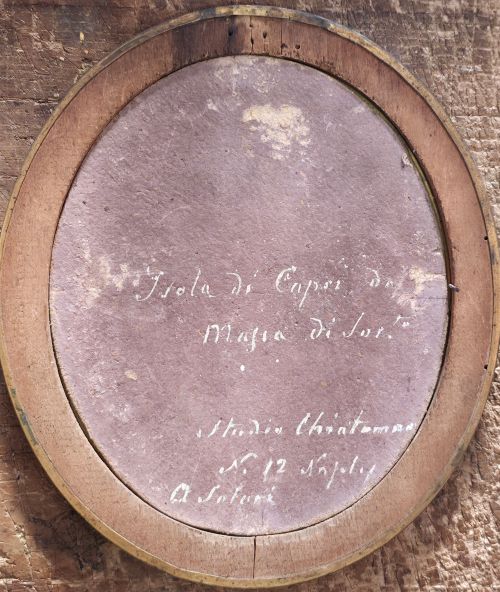 Isola di Capri da
Massa di Sor.to
Studio Chiatamone
N. 12 Naples
A Solari